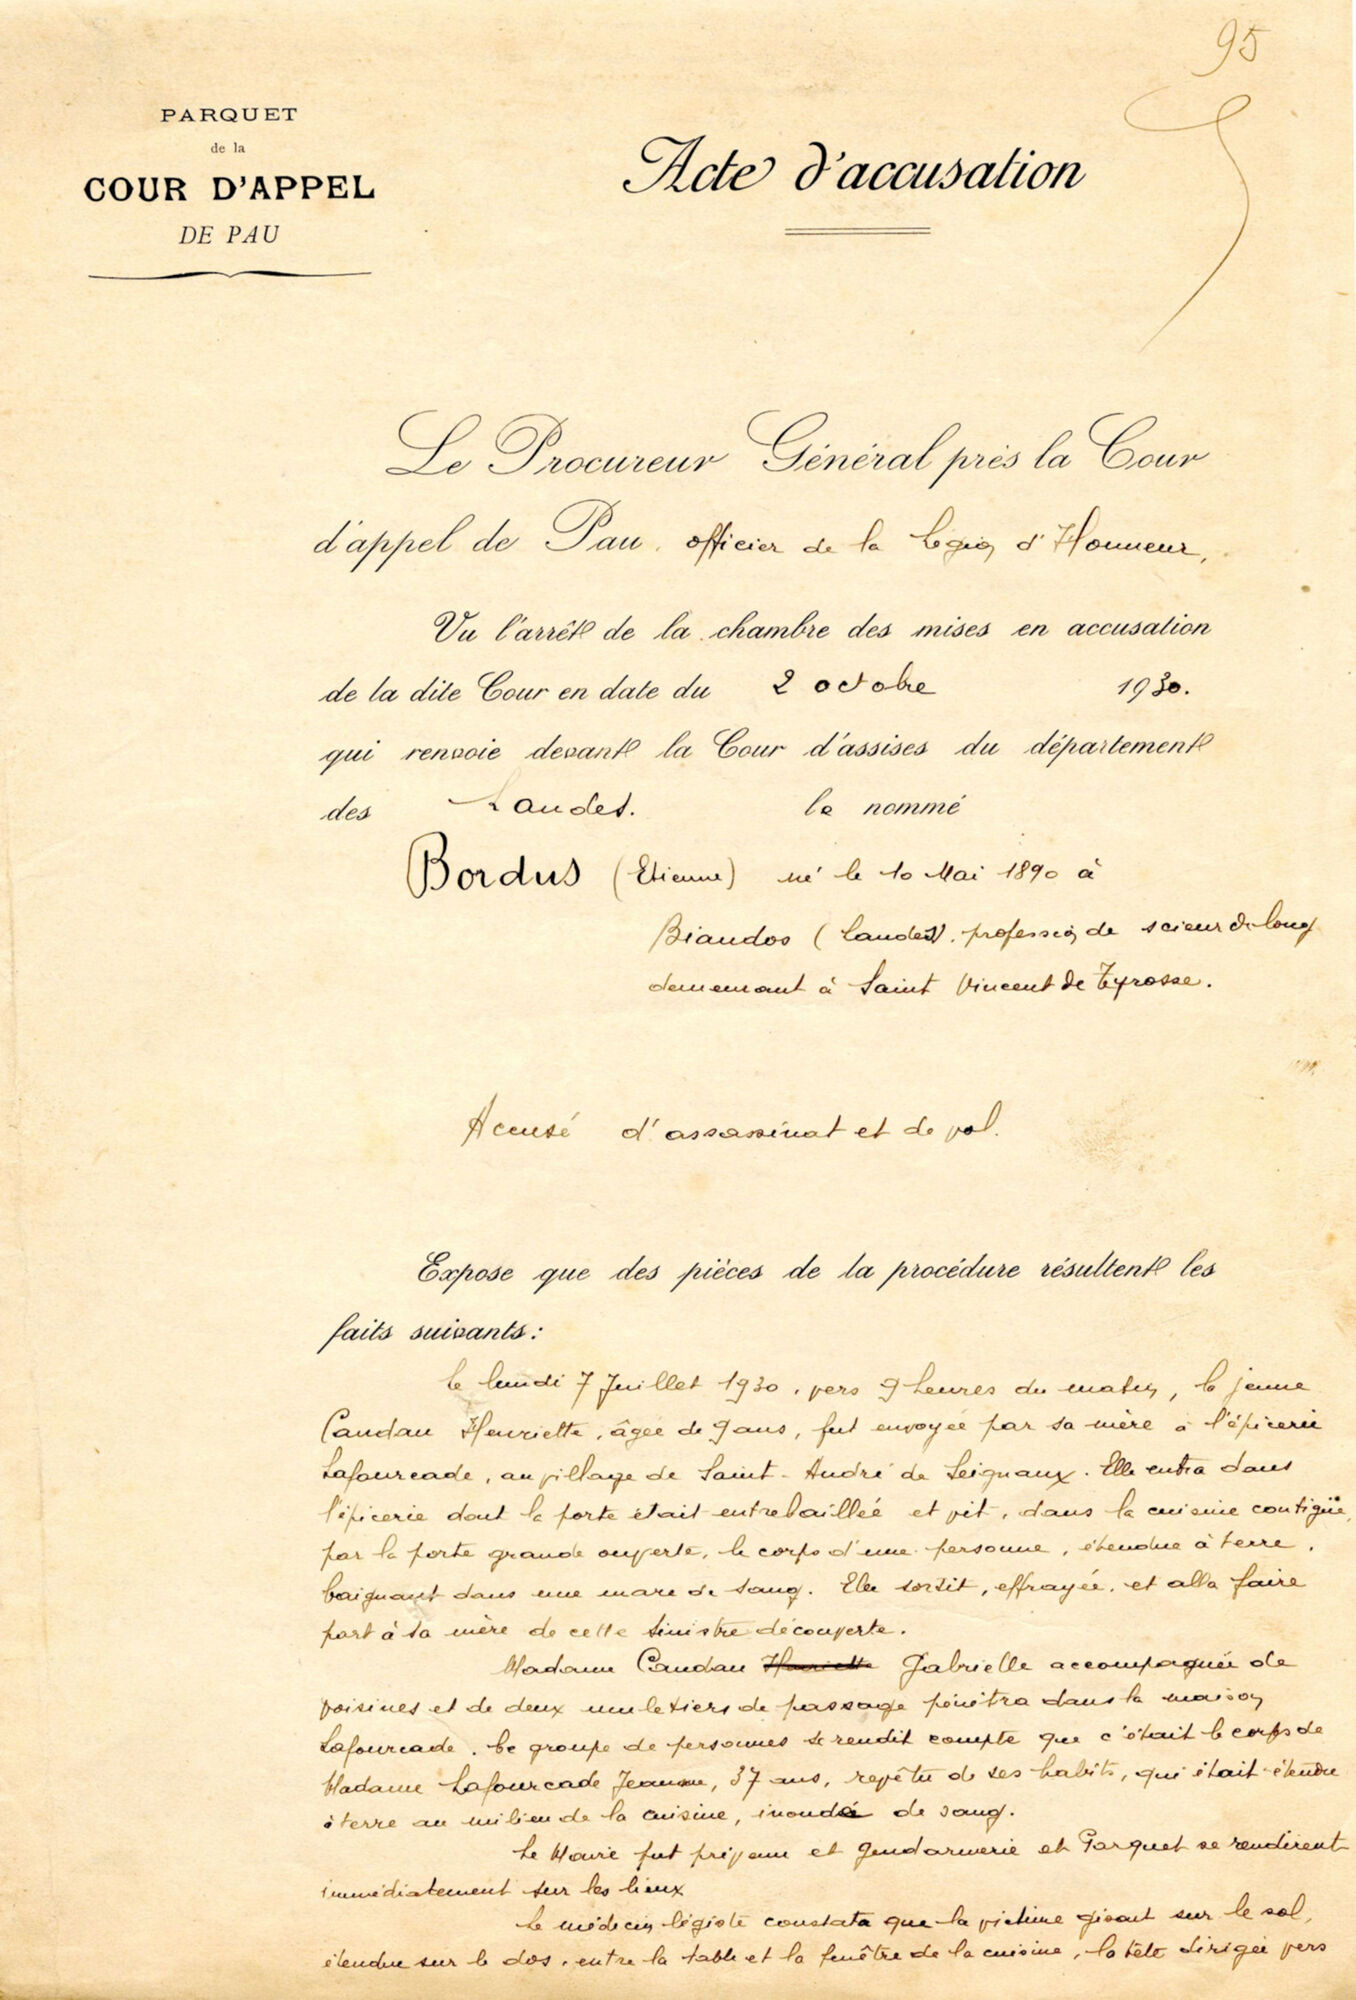 95
PARQUET
de la
COUR D'APPEL
DE PAU
Acte d'accusation
Le Procureur Général près la Cour
d'appel de Pau, officier de la Légion d'Honneur,
Vu l'arrêt de la chambre des mises en accusation
de la dite Cour en date du 2 octobre 1930.
qui renvoie devant la Cour d'assises du département
des Landes. le nommé
Bordus (Etienne) né le 10 Mai 1890 à
Biaudos (Landes), profession de scieur de long
demeurant à Saint Vincent de Tyrosse.
Accusé d'assassinat et de vol.
Expose que des pièces de la procédure résultent les
faits suivants :
Le lundi 7 Juillet 1930, vers 9 heures du matin, la jeune
Candau Henriette, âgée de 9 ans, fut envoyée par sa mère à l'épicerie
Lafourcade, au village de Saint-André de Seignaux. Elle entra dans
l'épicerie dont la porte était entrebaillée et vit, dans la cuisine contigüe,
par la porte grande ouverte, le corps d'une personne, étendue à terre,
baignant dans une mare de sang. Elle sortit, effrayée, et alla faire
part à sa mère de cette sinistre découverte.
Madame Candau Henriette Gabrielle accompagnée de
voisines et de deux muletiers de passage pénétra dans la maison
Lafourcade. Ce groupe de personnes se rendit compte que c'était le corps de
Madame Lafourcade Jeanne, 37 ans, revêtu de ses habits, qui était étendu
à terre au milieu de la cuisine, inondé de sang.
Le Maire fut prévenu et Gendarmerie et Parquet se rendirent
immédiatement sur les lieux
Le médecin légiste constata que la victime gisait sur le sol,
étendue sur le dos, entre la table et la fenêtre de la cuisine, la tête dirigée vers